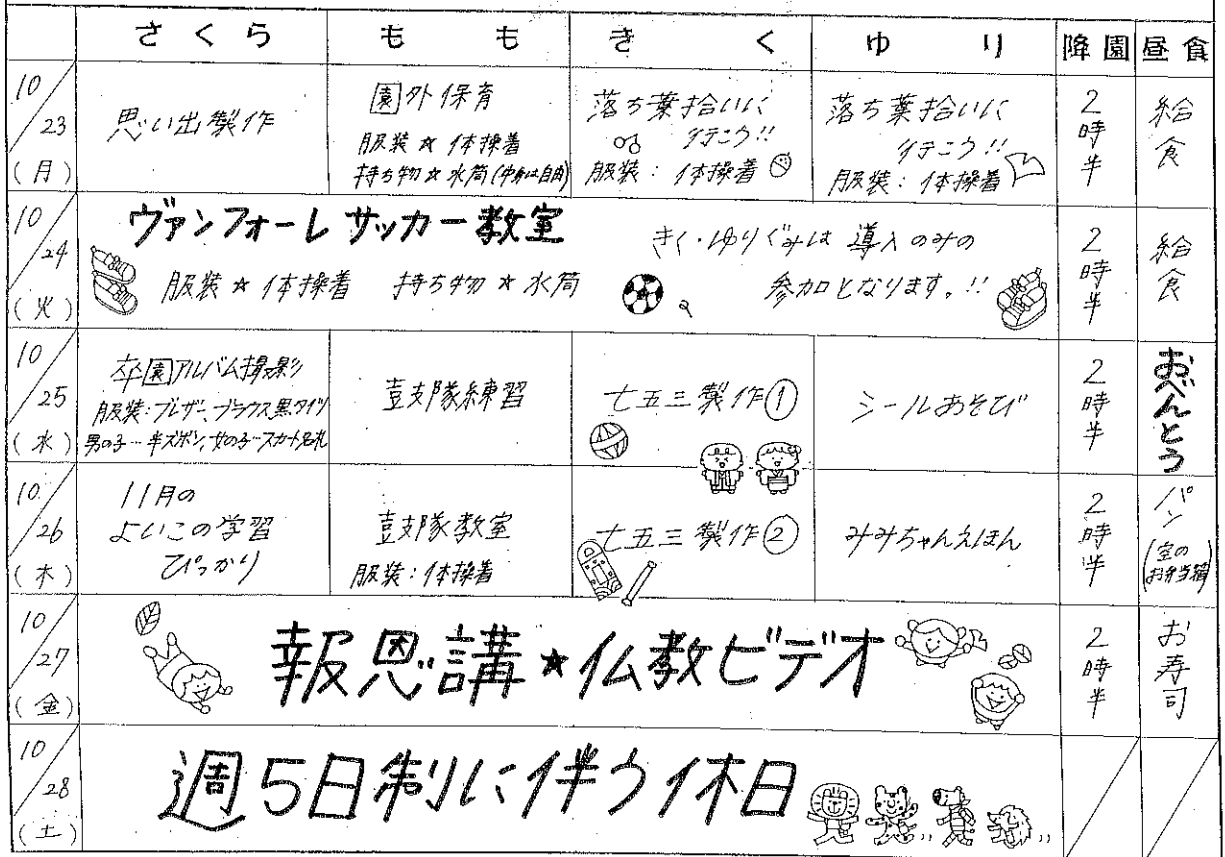 さくら もも きく ゆり 降園 昼食
10/23(月)
思い出製作
園外保育
服装★体操着
持ち物★水筒(中身は自由)
落ち葉拾いに
行こう!!
服装:体操着
落ち葉拾いに
行こう!!
服装:体操着
2時半
給食
10/24(火)
ヴァンフォーレサッカー教室
服装★体操着 持ち物★水筒
きく・ゆりぐみは導入のみの
参加となります。!!
2時半
給食
10/25(水)
卒園アルバム撮影
服装:ブレザー、ブラウス黒タイツ
男の子…半ズボン、女の子…スカート名札
鼓隊練習
七五三製作①
シールあそび
2時半
おべんとう
10/26(木)
11月の
よいこの学習
ぴっかり
鼓隊教室
服装:体操着
七五三製作②
みみちゃんえほん
2時半
パン
(空のお弁当箱)
10/27(金)
報恩講★仏教ビデオ
2時半
お寿司
10/28(土)
週5日制に伴う休日